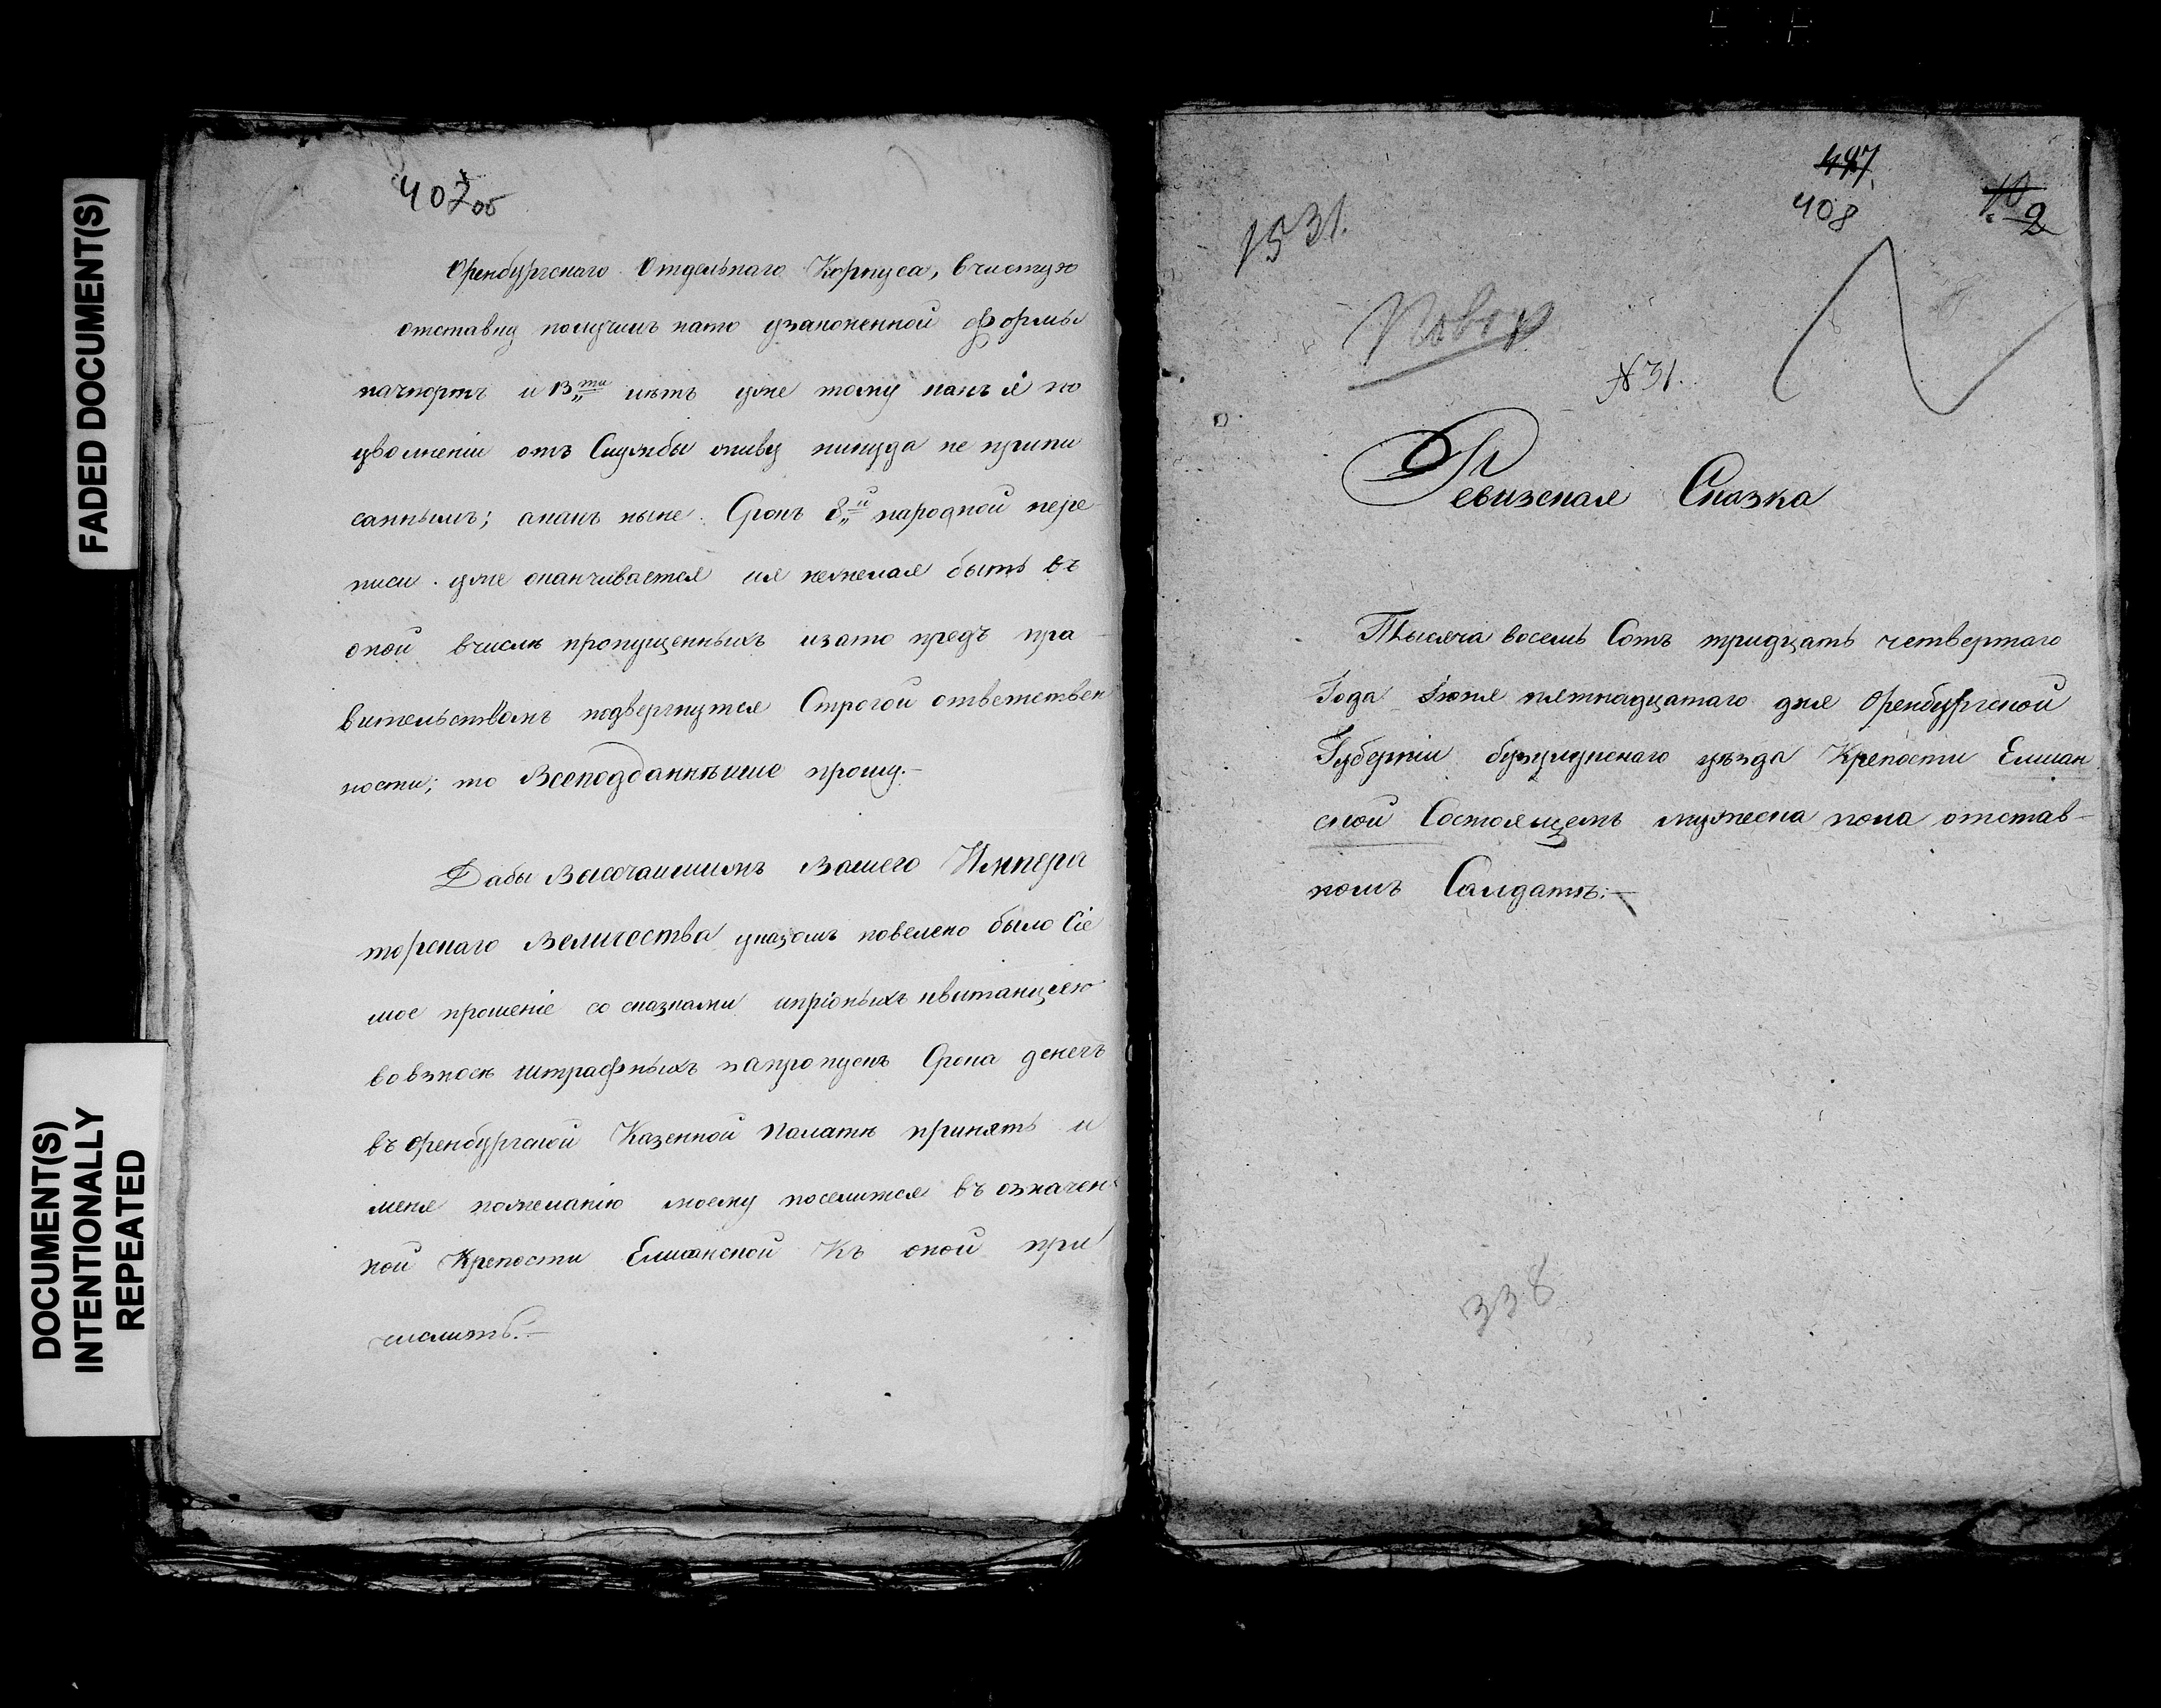 FADED DOCUMENT(S)
DOCUMENT(S)
INTENTIONALLY
REPEATED
407об
Оренбургскаго Отдельнаго Корпуса, вчистую
отставку получилъ нато узаконенной формы
пачпортъ и 13ти летъ уже тому какъ я по
уволнении отъ Службы живу никуда не припи
саннымъ; акакъ ныне Срокъ 8й народной пере
писи уже оканчивается ия нежелая быть въ
оной вчисле пропущенныхъ изато предъ пра
вительствомъ подвергнутся Строгой ответствен
ности; то Всеподданнейше прошу.—
Дабы Высочайшимъ Вашего Импера
торскаго Величества указомъ повелено было Сiе
мое прошенiе со сказками иприоныхъ квитанцiею
вовзносе штрафныхъ запропускъ Срока денегъ
въ Оренбургской Казенной Палате принять и
меня пожеланiю моему поселится въ означен
ной Крепости Елшанской Къ оной при
числить.—
1531.
447
408
10
2
№ 31.
Ревизская Сказка
Тысяча восемь Сотъ тридцать четвертаго
Года Iюня пятнадцатаго дня Оренбургской
Губернiи бузулукскаго уезда Крепости Елшан
ской Состоящемъ мужеска пола отстав-
номъ Салдате:—
338